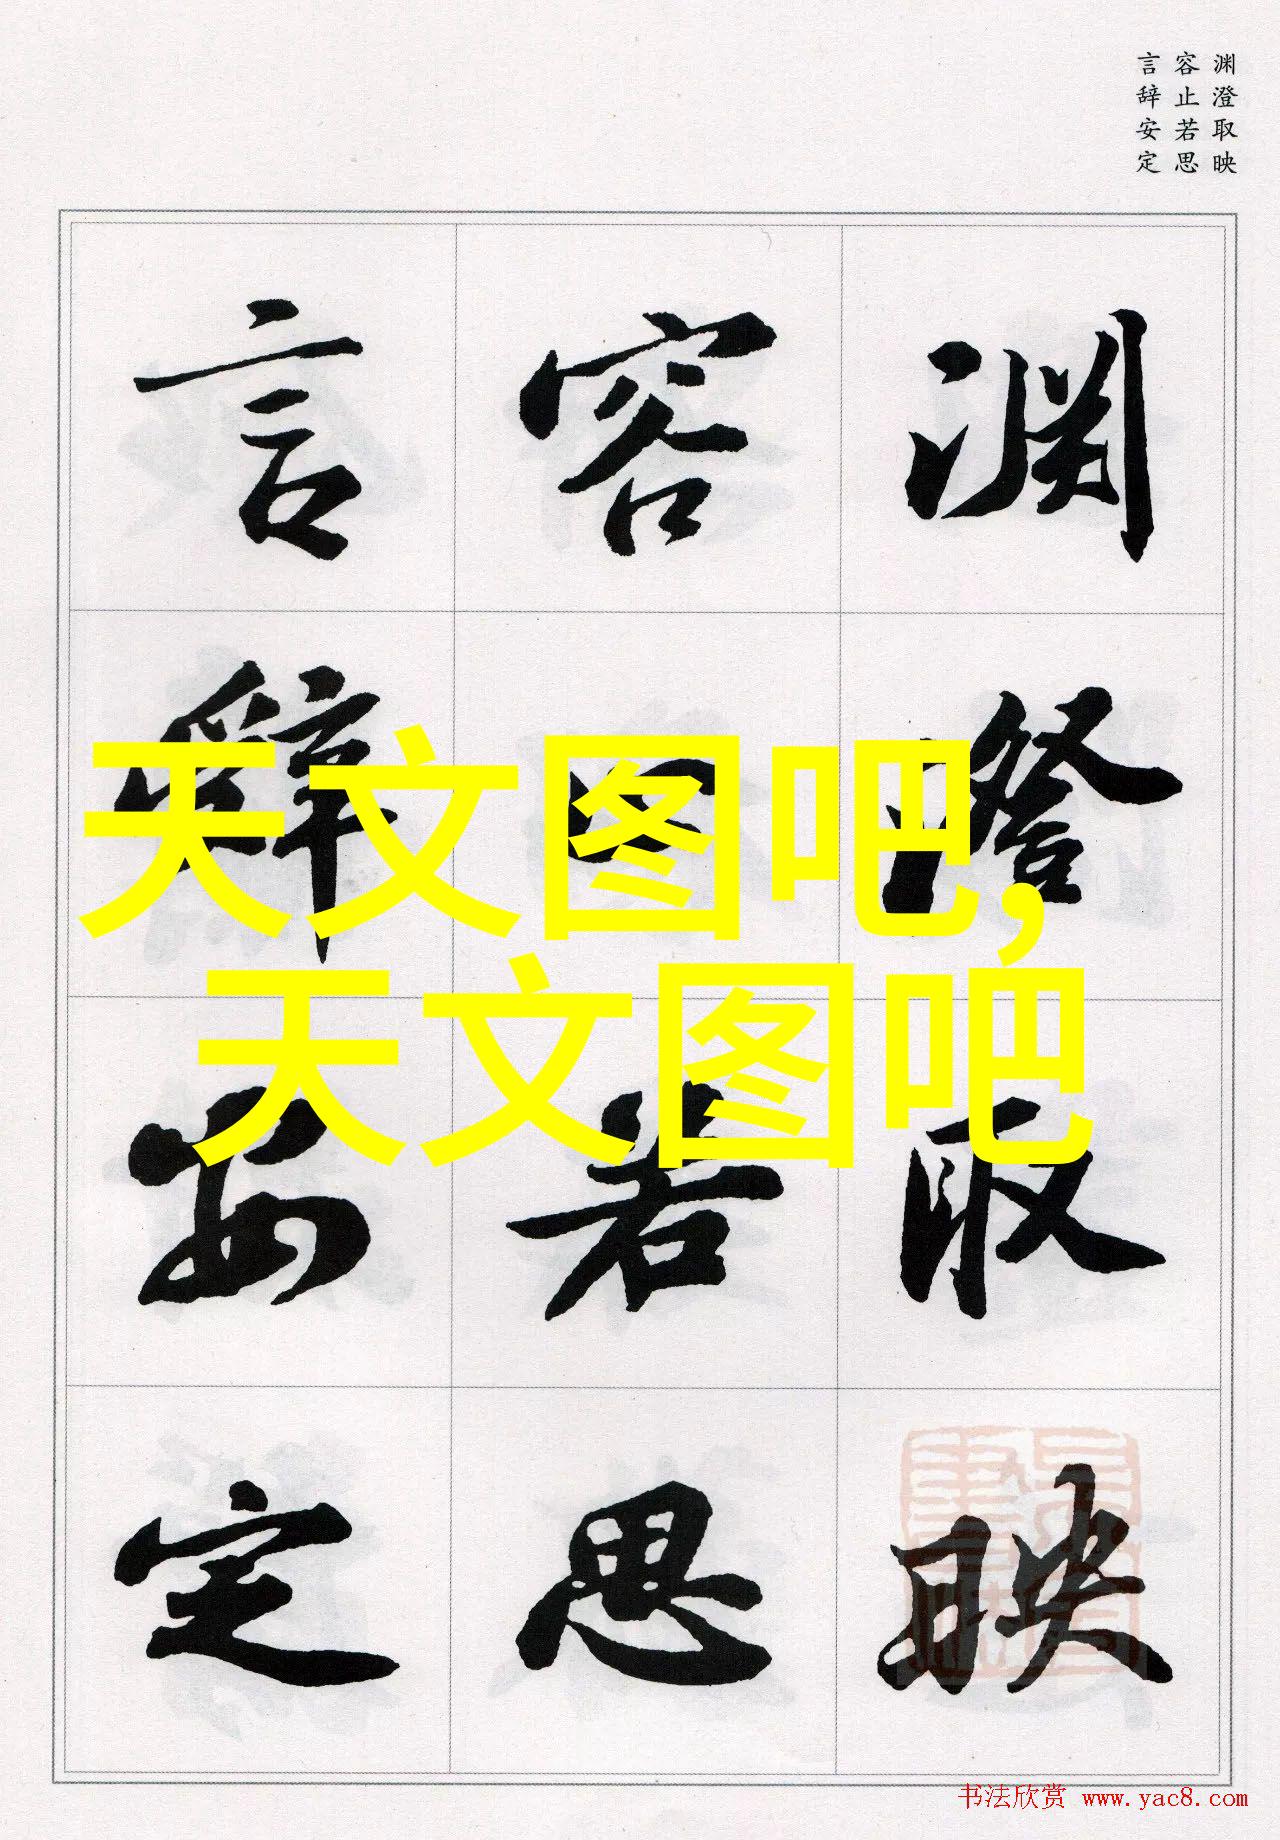 渊澄取映
容止若思
言辞安定
渊澄取映
容止若思
言辞安定
天文图吧,
天文图吧
书法欣赏 www.yac8.com